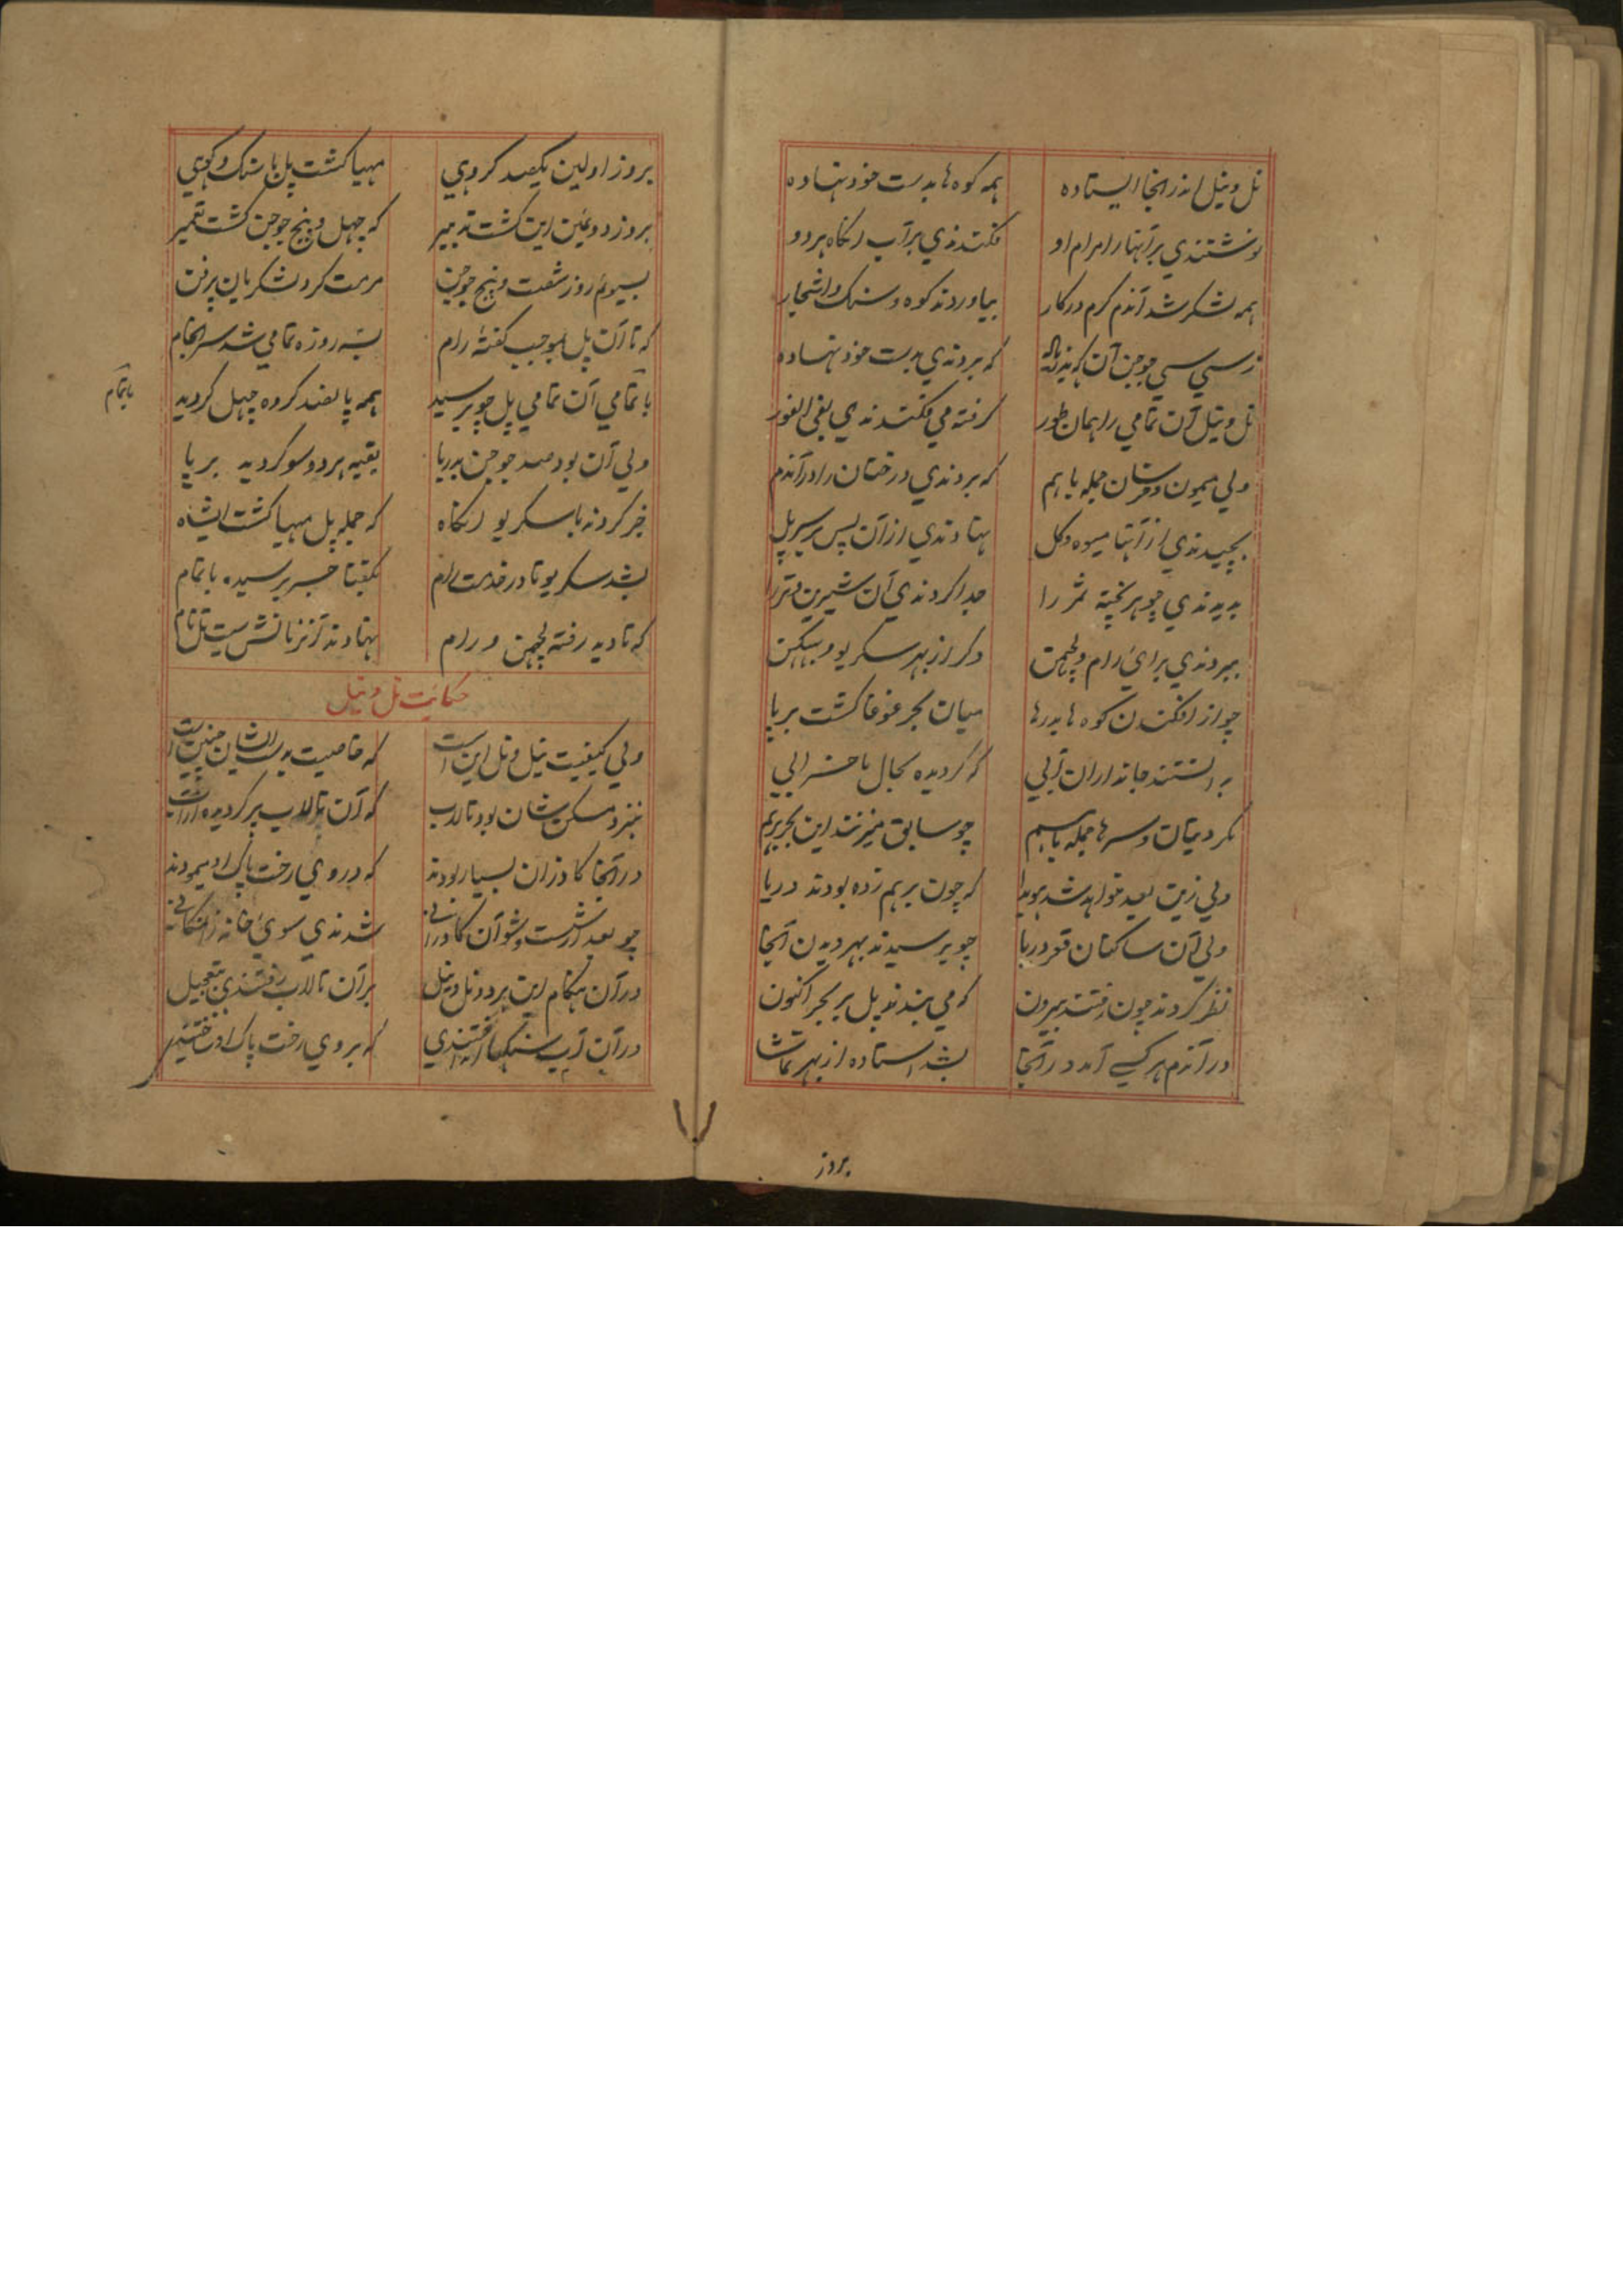 نل و نیل اندر انجا ایستاده همه کوه ها بدست خود نهاده
نوشتندي بر آنها را امرام او فکندندي بر آب انکاه هر دو
همه لشکر شد آندم کرم در کار بیاوردند کوه و سنک و اشجار
ز سي سي جوجن آن که بردندي بدست خود نهاده
نل و نیل آن تمامي را همان طور کرفته مي فکندندي بفي الفور
ولي میمون و خرسان جمله باهم که بردندي درختان را در آندم
بچیدندي از آنها میوه و کل نهادندي از آن پس بر سر پل
بدیدندي چو هر پخته ثمر را جدا کردندي آن شیرین و تر را
ببردندي براي رام و لچمن دکر از بهر سکریو و ببیکن
چو از افکندن کوه ها بدرها میان بحر غوغا کشت برپا
بدانستند جانداران آبي که کردیده بحال ما خرابي
بکردند و سرها جمله باهم چو سابق میزنند این بحر برهم
ولي زین بعد خواهد شد هویدا که چون برهم زده بودند دریا
ولي آن ساکنان قعر دریا چو برسیدند بهر دیدن آنجا
نظر کردند چون رفتند بیرون که مي بندند پل بر بحر اکنون
در آندم هر کسے آمد در آنجا بشد استاده از بهر تماشا
بروز
بروز اولین یکصد کروهي مهیا کشت پل با سنک و کوهي
بروز دوئمین این کشت تدبیر که چهل و پنج جوجن کشت تعمیر
بسیوم روز شصت و پنج جوجن مرمت کرد لشکر یان پرفن
که تا آن پل بموجب کفتهٔ رام بسه روزه تمامي شد سرانجام
با تمامي آن تمامي پل چو برسید همه پانصد کروه چهل کردید
باتمام
ولي آن بود صد جوجن بدریا بقیه هر دو سو کردید برپا
خبر کردند با سکریو انکاه که جمله پل مهیا کشت ایشاه
بشد سکریو تا در خدمت رام بکفتا خبر برسیده باتمام
که تا دیه رفته لچمن و رام نهادند آنزمانش سیت پل نام
حکایت نل و نیل
ولي کیفیت نیل و نل این است که خاصیت بدست ایشان چنین است
بنزد مسکن شان بود تالاب که آن تالاب پر کردیده از آب
در آنجا کاذران بسیار بودند که بر روي رخت پاک او میمودند
چو بعد از شست و شو آن کاذراني شدندي سوي خانه زان مکاني
در آن هنکام این هر دو نل و نیل بر آن تالاب رفتندي بتعجیل
در آن آب سنکها انداختندي که بر وي رخت پاک او ساختندي